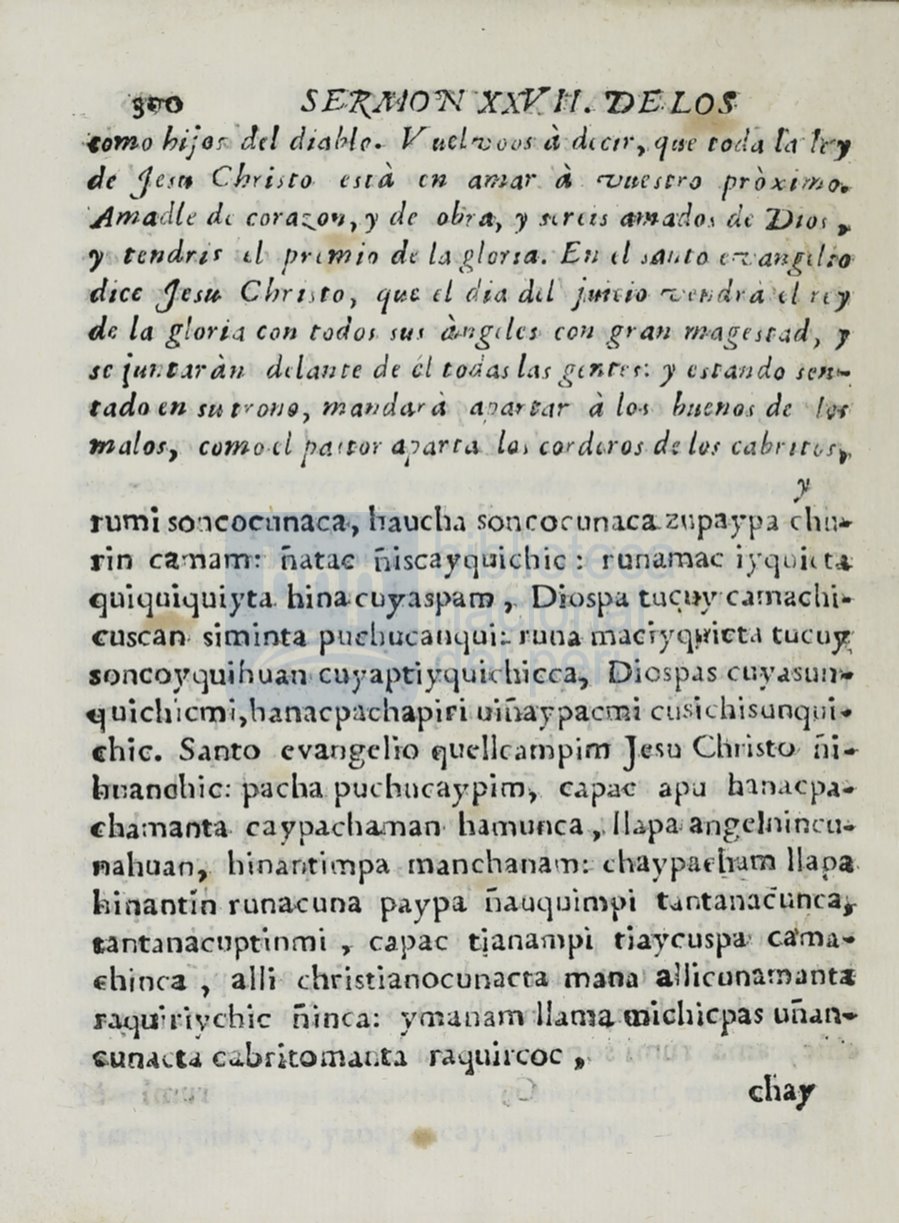 300 SERMON XXVII. DE LOS
como hijos del diablo. Vuelvoos à decir, que toda la ley
de Jesu Christo està en amar à vuestro pròximo.
Amadle de corazon, y de obra, y sereis amados de Dios,
y tendris el premio de la gloria. En el santo evangelio
dice Jesu Christo, que el dia del juicio vendrà el rey
de la gloria con todos sus àngeles con gran magestad, y
se juntaràn delante de él todas las gentes: y estando sen-
tado en su trono, mandarà apartar à los buenos de los
malos, como el pastor aparta los corderos de los cabritos,
y
rumi soncocunaca, haucha soncocunaca zupaypa chu-
rin camam: ñatac ñiscayquichic: runamac iyquicta
quiquiquiyta hina cuyaspam, Diospa tucuy camachi-
cuscan siminta puchucanqui: runa maciyquicta tucuy
soncoyquihuan cuyaptiyquichicca, Diospas cuyasun-
quichicmi, hanacpachapiri uiñaypacmi cusichisunqui-
chic. Santo evangelio quellcampim Jesu Christo ñi-
huanchic: pacha puchucaypim, capac apu hanacpa-
chamanta caypachaman hamunca, llapa angelnincu-
nahuan, hinantimpa manchanam: chaypacham llapa
hinantin runacuna paypa ñauquimpi tantanacunca,
tantanacuptinmi, capac tianampi tiaycuspa cama-
chinca, alli christianocunacta mana allicunamanta
raquiriychic ñinca: ymanam llama michicpas uñan-
cunacta cabritomanta raquircoc,
chay
biblioteca
nacional